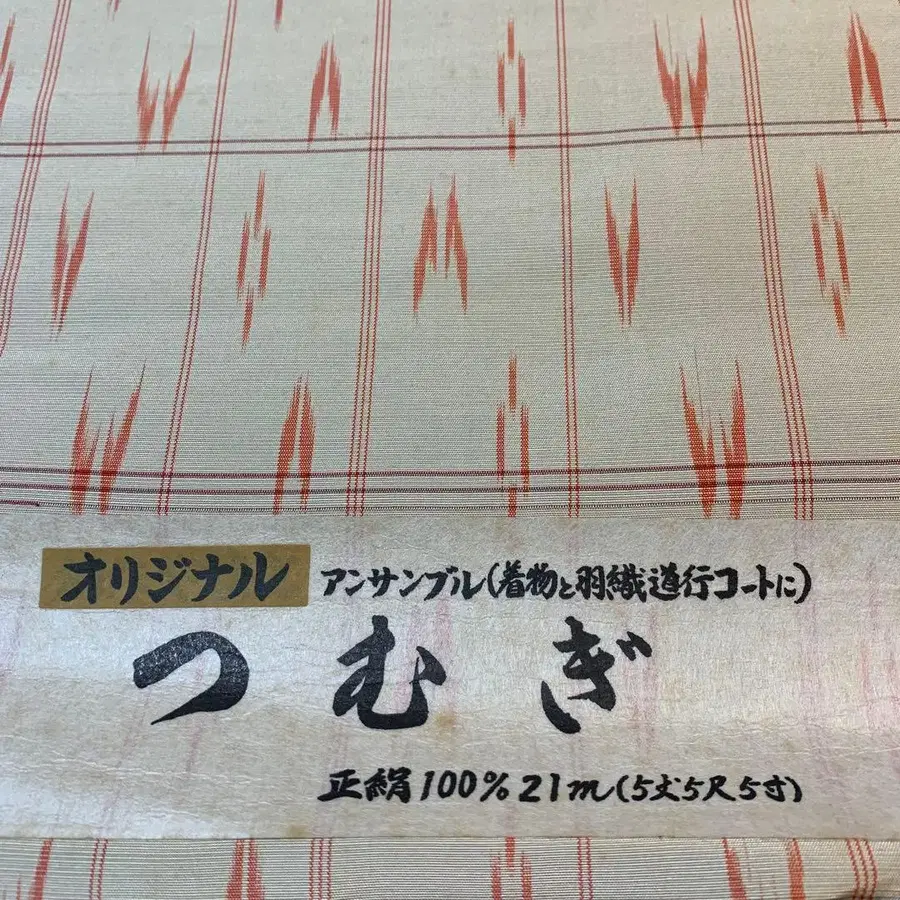 オリジナル アンサンブル(着物と羽織道行コートに)
つむぎ
正絹100% 21m(5丈5尺5寸)